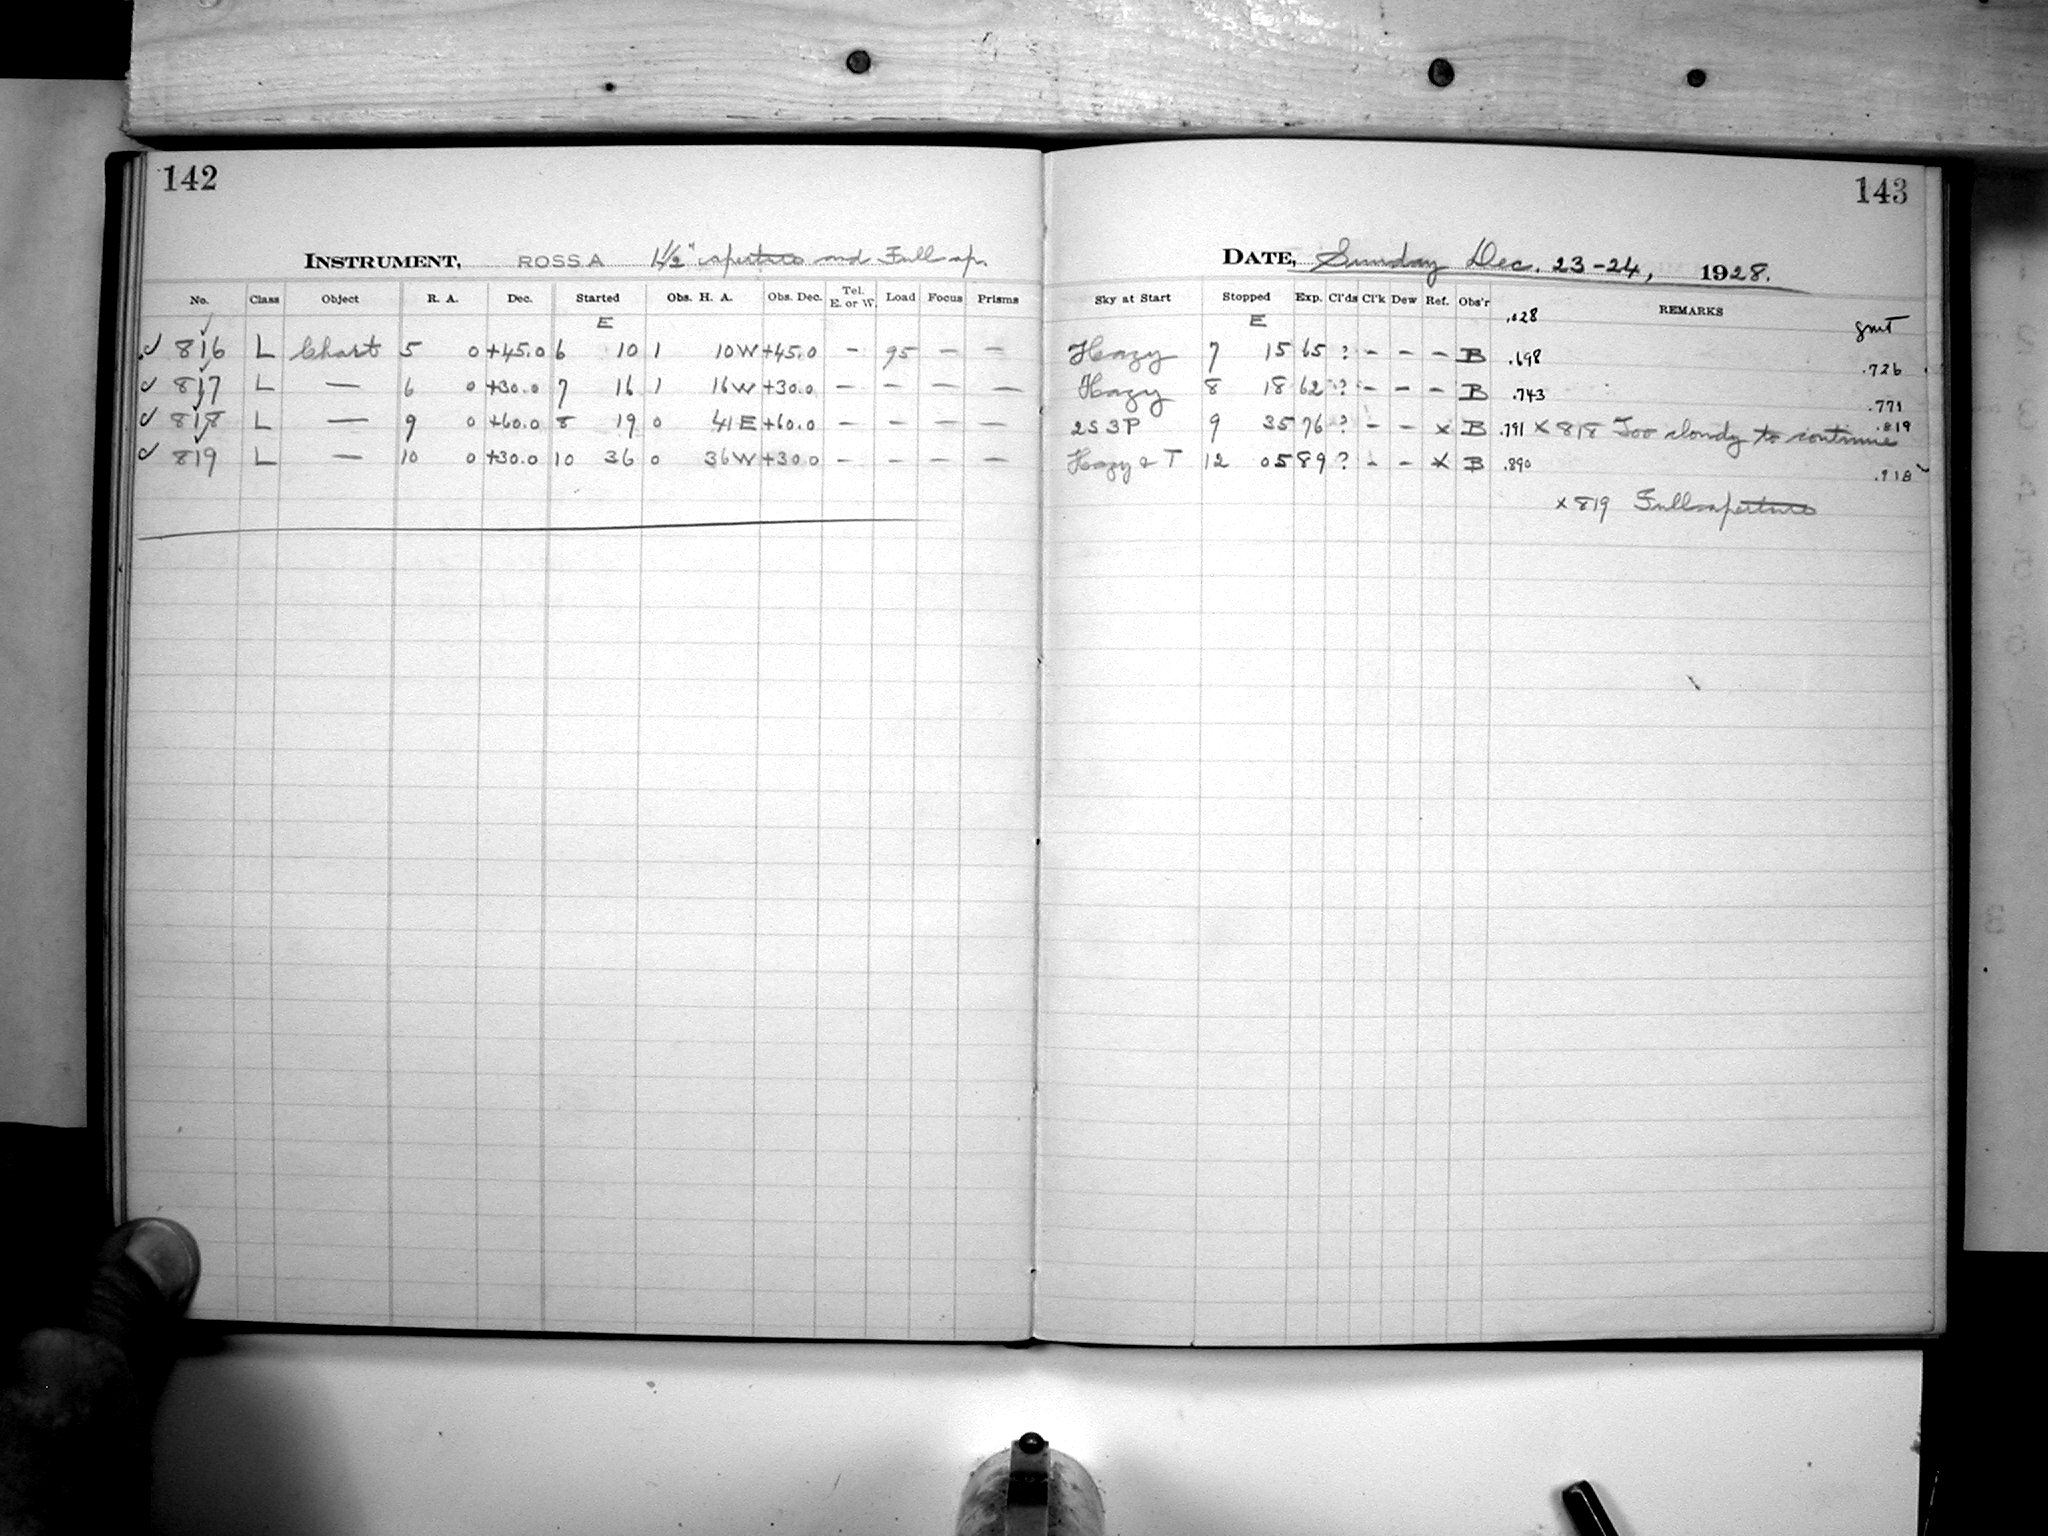 142
INSTRUMENT, ROSS A 1½" aperture and Full ap.
No. Class Object R. A. Dec. Started Obs. H. A. Obs. Dec. Tel. E. or W. Load Focus Prisms
E
✓ 816 L Chart 5 0 +45.0 6 10 1 10W +45.0 - 95 - -
✓ 817 L — 6 0 +30.0 7 16 1 16W +30.0 - - - -
✓ 818 L — 9 0 +60.0 8 19 0 41E +60.0 - - - -
✓ 819 L — 10 0 +30.0 10 36 0 36W +30.0 - - - -
143
DATE, Sunday Dec. 23-24, 1928.
Sky at Start Stopped Exp. Cl'ds Cl'k Dew Ref. Obs'r REMARKS
E .028 gmt
Hazy 7 15 65 ? - - - B .698 .726
Hazy 8 18 62 ? - - - B .743 .771
2S 3P 9 35 76 ? - - x B .791 x 818 Too cloudy to continue .819
Hazy & T 12 05 89 ? - - x B .890 .918
x 819 Full aperture